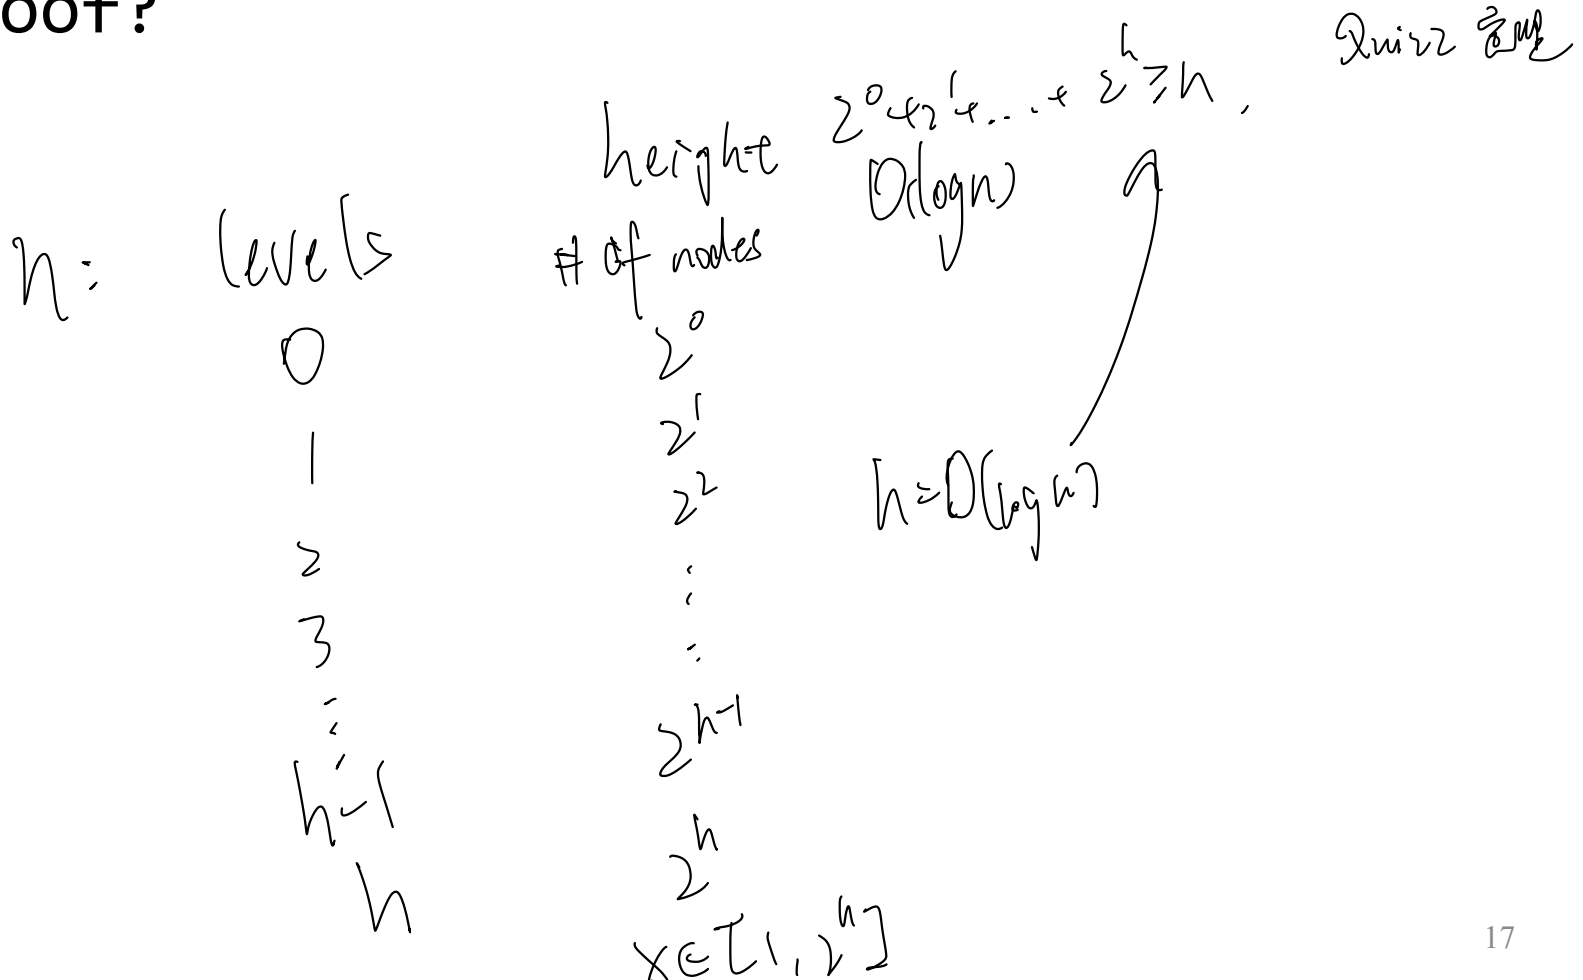 oof?
Quizz
height 2⁰+2¹+...+ 2ʰ ≥ n,
O(logn)
n: levels # of nodes
0 2⁰
1 2¹
2 2²
3 ⋮
⋮
h-1 2ʰ⁻¹
h 2ʰ
x∈[1, 2ʰ]
h=O(logn)
17